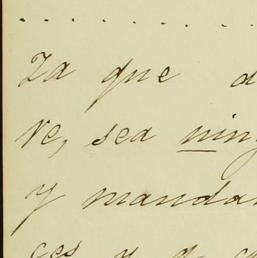 Za que d
ve, sea ning
y mandar
ces y q